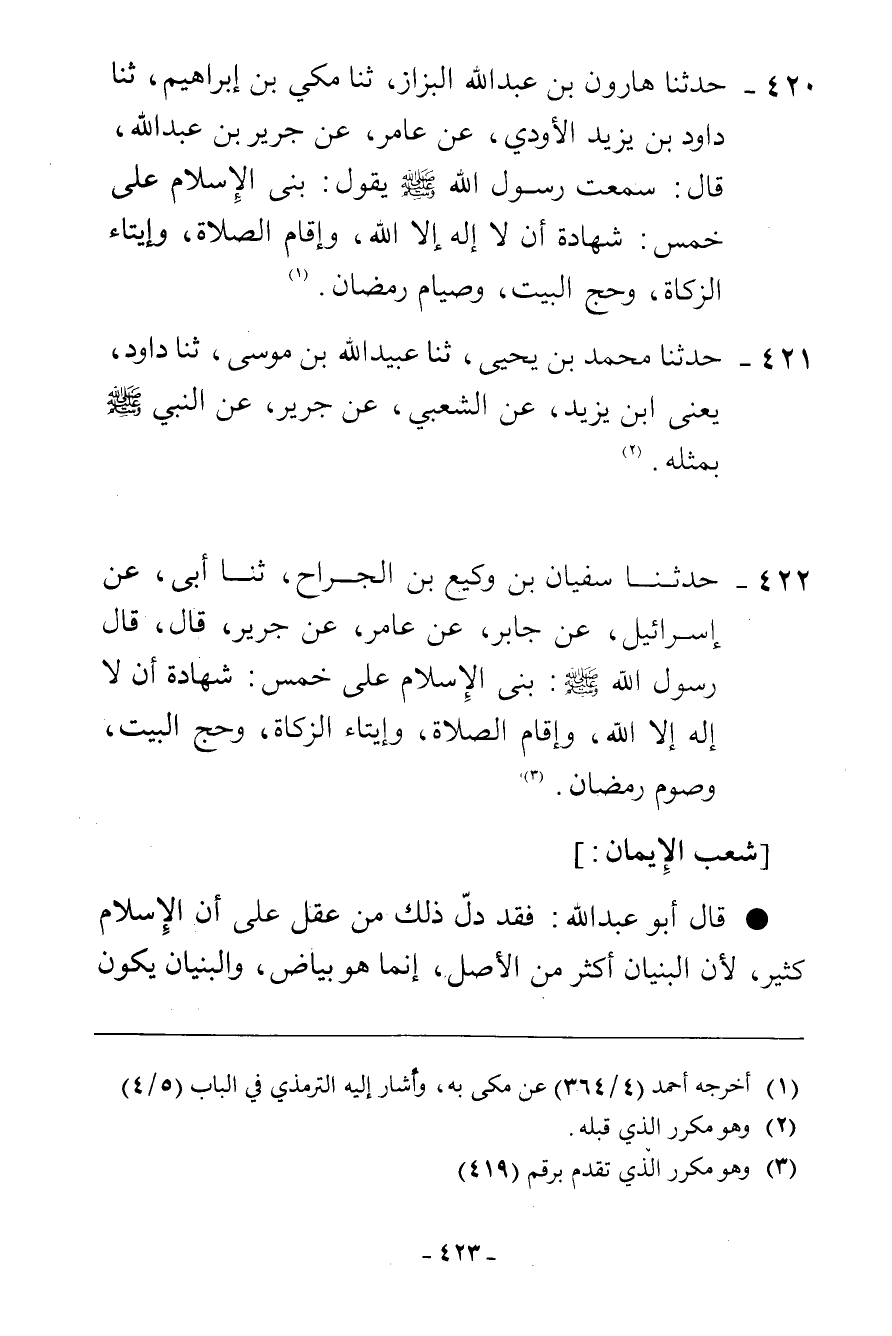 ٤٢٠ - حدثنا هارون بن عبدالله البزاز، ثنا مكي بن إبراهيم، ثنا
داود بن يزيد الأودي، عن عامر، عن جرير بن عبدالله،
قال: سمعت رسول الله ﷺ يقول: بنى الإسلام على
خمس: شهادة أن لا إله إلا الله، وإقام الصلاة، وإيتاء
الزكاة، وحج البيت، وصيام رمضان. (١)
٤٢١ - حدثنا محمد بن يحيى، ثنا عبيدالله بن موسى، ثنا داود،
يعنى ابن يزيد، عن الشعبي، عن جرير، عن النبي ﷺ
بمثله. (٢)
٤٢٢ - حدثنا سفيان بن وكيع بن الجراح، ثنا أبى، عن
إسرائيل، عن جابر، عن عامر، عن جرير، قال، قال
رسول الله ﷺ: بنى الإسلام على خمس: شهادة أن لا
إله إلا الله، وإقام الصلاة، وإيتاء الزكاة، وحج البيت،
وصوم رمضان. (٣)
[شعب الإيمان:]
● قال أبو عبدالله: فقد دلّ ذلك من عقل على أن الإسلام
كثير، لأن البنيان أكثر من الأصل، إنما هو بياض، والبنيان يكون
(١) أخرجه أحمد (٣٦٤/٤) عن مكى به، وأشار إليه الترمذي في الباب (٤/٥)
(٢) وهو مكرر الذي قبله.
(٣) وهو مكرر الذي تقدم برقم (٤١٩)
- ٤٢٣ -